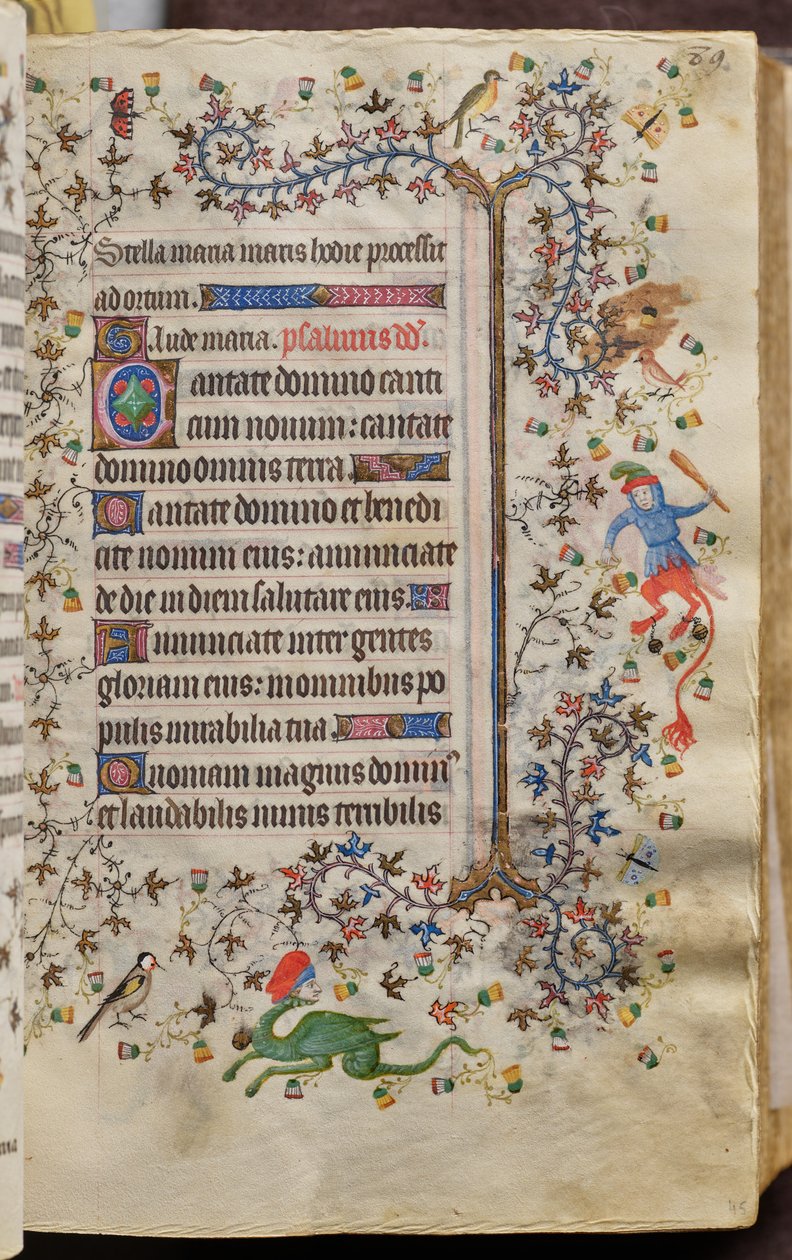 89
Stella maria maris hodie processit
ad ortum.
Gaude maria. psalmus dd'.
Cantate domino canti
cum nouum: cantate
domino omnis terra.
Cantate domino et benedi
cite nomini eius: annunciate
de die in diem salutare eius.
Annunciate inter gentes
gloriam eius: in omnibus po
pulis mirabilia tua.
Quoniam magnus domin9
et laudabilis nimis terribilis
45